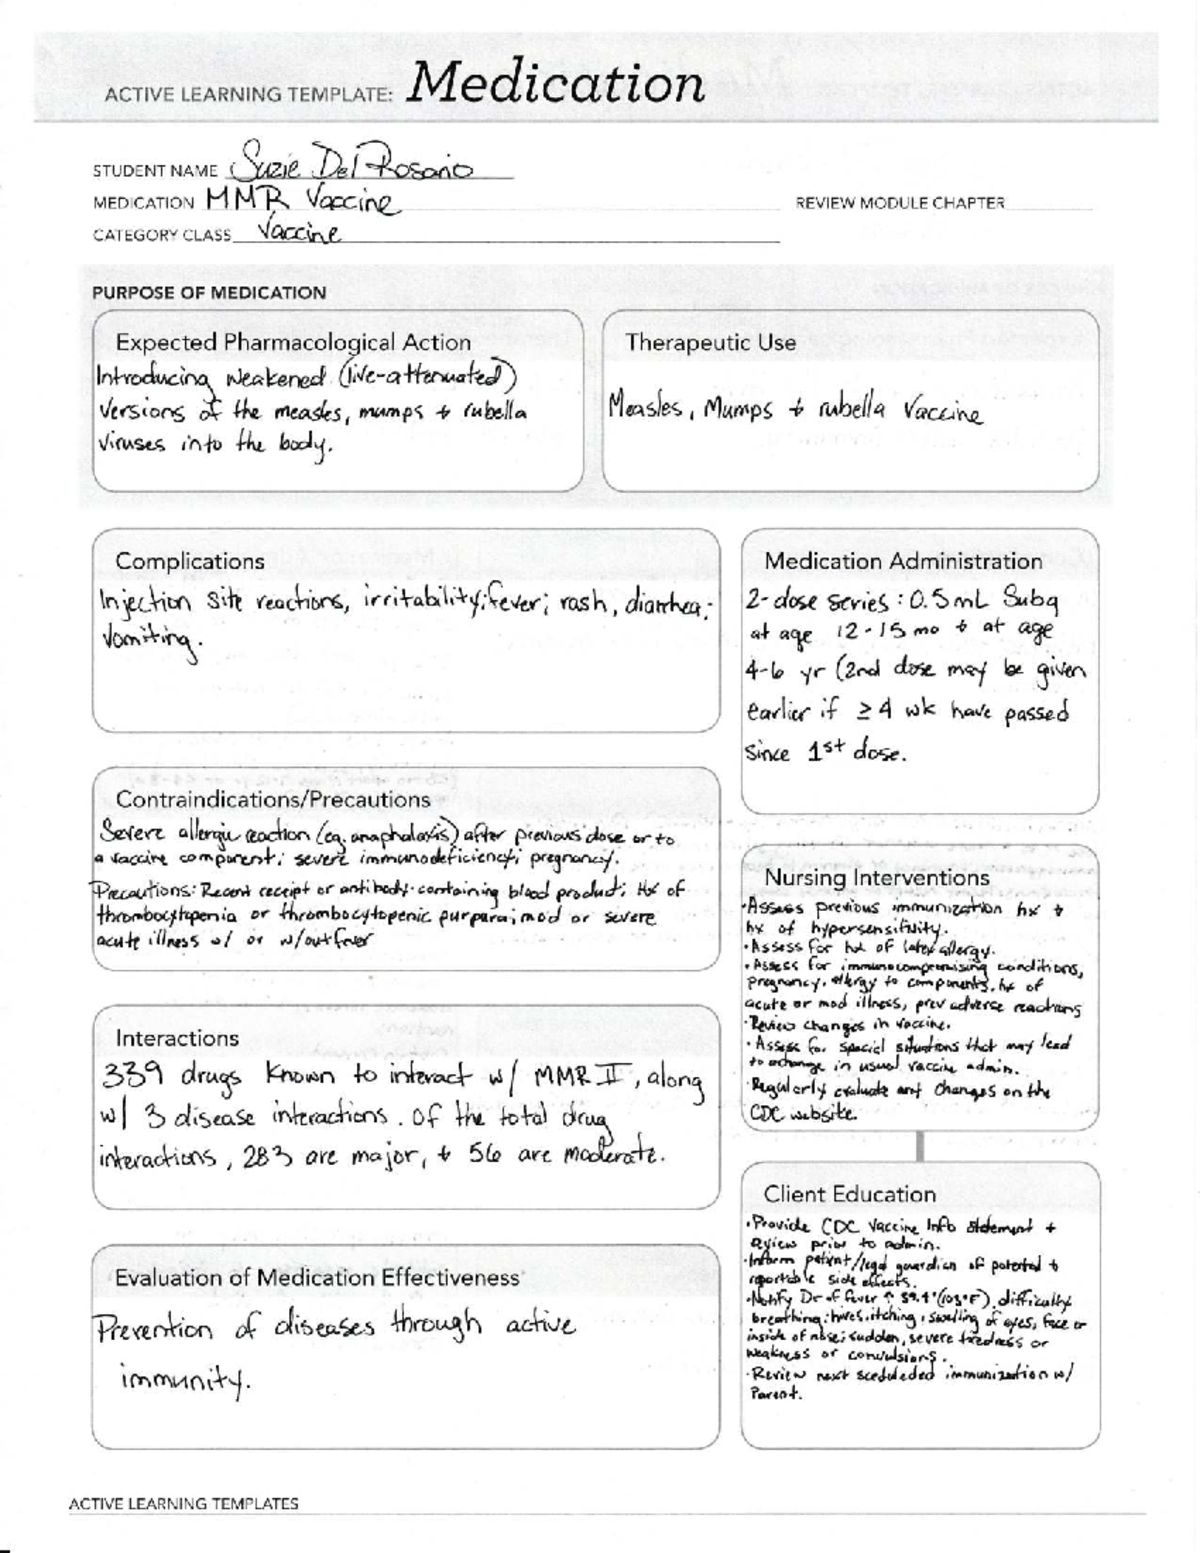 ACTIVE LEARNING TEMPLATE: Medication
STUDENT NAME Suzie Del Rosario
MEDICATION MMR Vaccine
REVIEW MODULE CHAPTER
CATEGORY CLASS Vaccine
PURPOSE OF MEDICATION
Expected Pharmacological Action
Introducing weakened (live-attenuated)
versions of the measles, mumps + rubella
viruses into the body.
Therapeutic Use
Measles, Mumps + rubella vaccine
Complications
Injection site reactions, irritability; fever; rash, diarrhea;
vomiting.
Medication Administration
2-dose series: 0.5 mL Subq
at age 12-15 mo + at age
4-6 yr (2nd dose may be given
earlier if ≥ 4 wk have passed
since 1st dose.
Contraindications/Precautions
Severe allergic reaction (eg. anaphalaxis) after previous dose or to
a vaccine component; severe immunodeficiency; pregnancy.
Precautions: Recent receipt or antibody-containing blood product; Hx of
thrombocytopenia or thrombocytopenic purpura; mod or severe
acute illness w/ or w/out fever
Nursing Interventions
•Assess previous immunization hx +
hx of hypersensitivity.
•Assess for hx of latex allergy.
•Assess for immunocompromising conditions,
pregnancy, allergy to components, hx of
acute or mod illness, prev adverse reactions
•Review changes in vaccine.
•Assess for special situations that may lead
to a change in usual vaccine admin.
•Regularly evaluate any changes on the
CDC website.
Interactions
339 drugs known to interact w/ MMR II, along
w/ 3 disease interactions. Of the total drug
interactions, 283 are major, + 56 are moderate.
Client Education
•Provide CDC Vaccine Info statement +
review prior to admin.
•Inform patient/legal guardian of potential +
reportable side effects.
•Notify Dr of fever ↑ 39.4° (103°F), difficulty
breathing; hives, itching, swelling of eyes, face or
inside of nose; sudden, severe tiredness or
weakness or convulsions.
•Review next sceduleded immunization w/
Parent.
Evaluation of Medication Effectiveness
Prevention of diseases through active
immunity.
ACTIVE LEARNING TEMPLATES